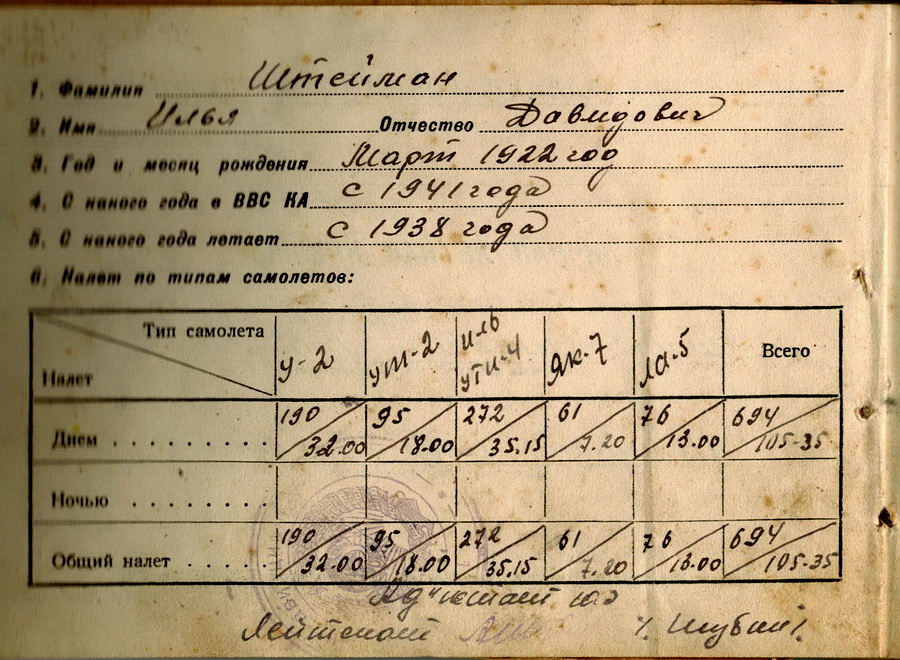 1. Фамилия Штейман
2. Имя Илья Отчество Давидович
3. Год и месяц рождения Март 1922 год
4. С какого года в ВВС КА с 1941 года
5. С какого года летает с 1938 года
6. Налет по типам самолетов:
Тип самолета
Налет
У-2 | УТ-2 | иль УТИ-4 | Як-7 | Ла-5 | Всего
Днем 190 / 32.00 | 95 / 18.00 | 272 / 35.15 | 61 / 7.20 | 76 / 13.00 | 694 / 105-35
Ночью
Общий налет 190 / 32.00 | 95 / 18.00 | 272 / 35.15 | 61 / 7.20 | 76 / 13.00 | 694 / 105-35
Адъютант
Лейтенант